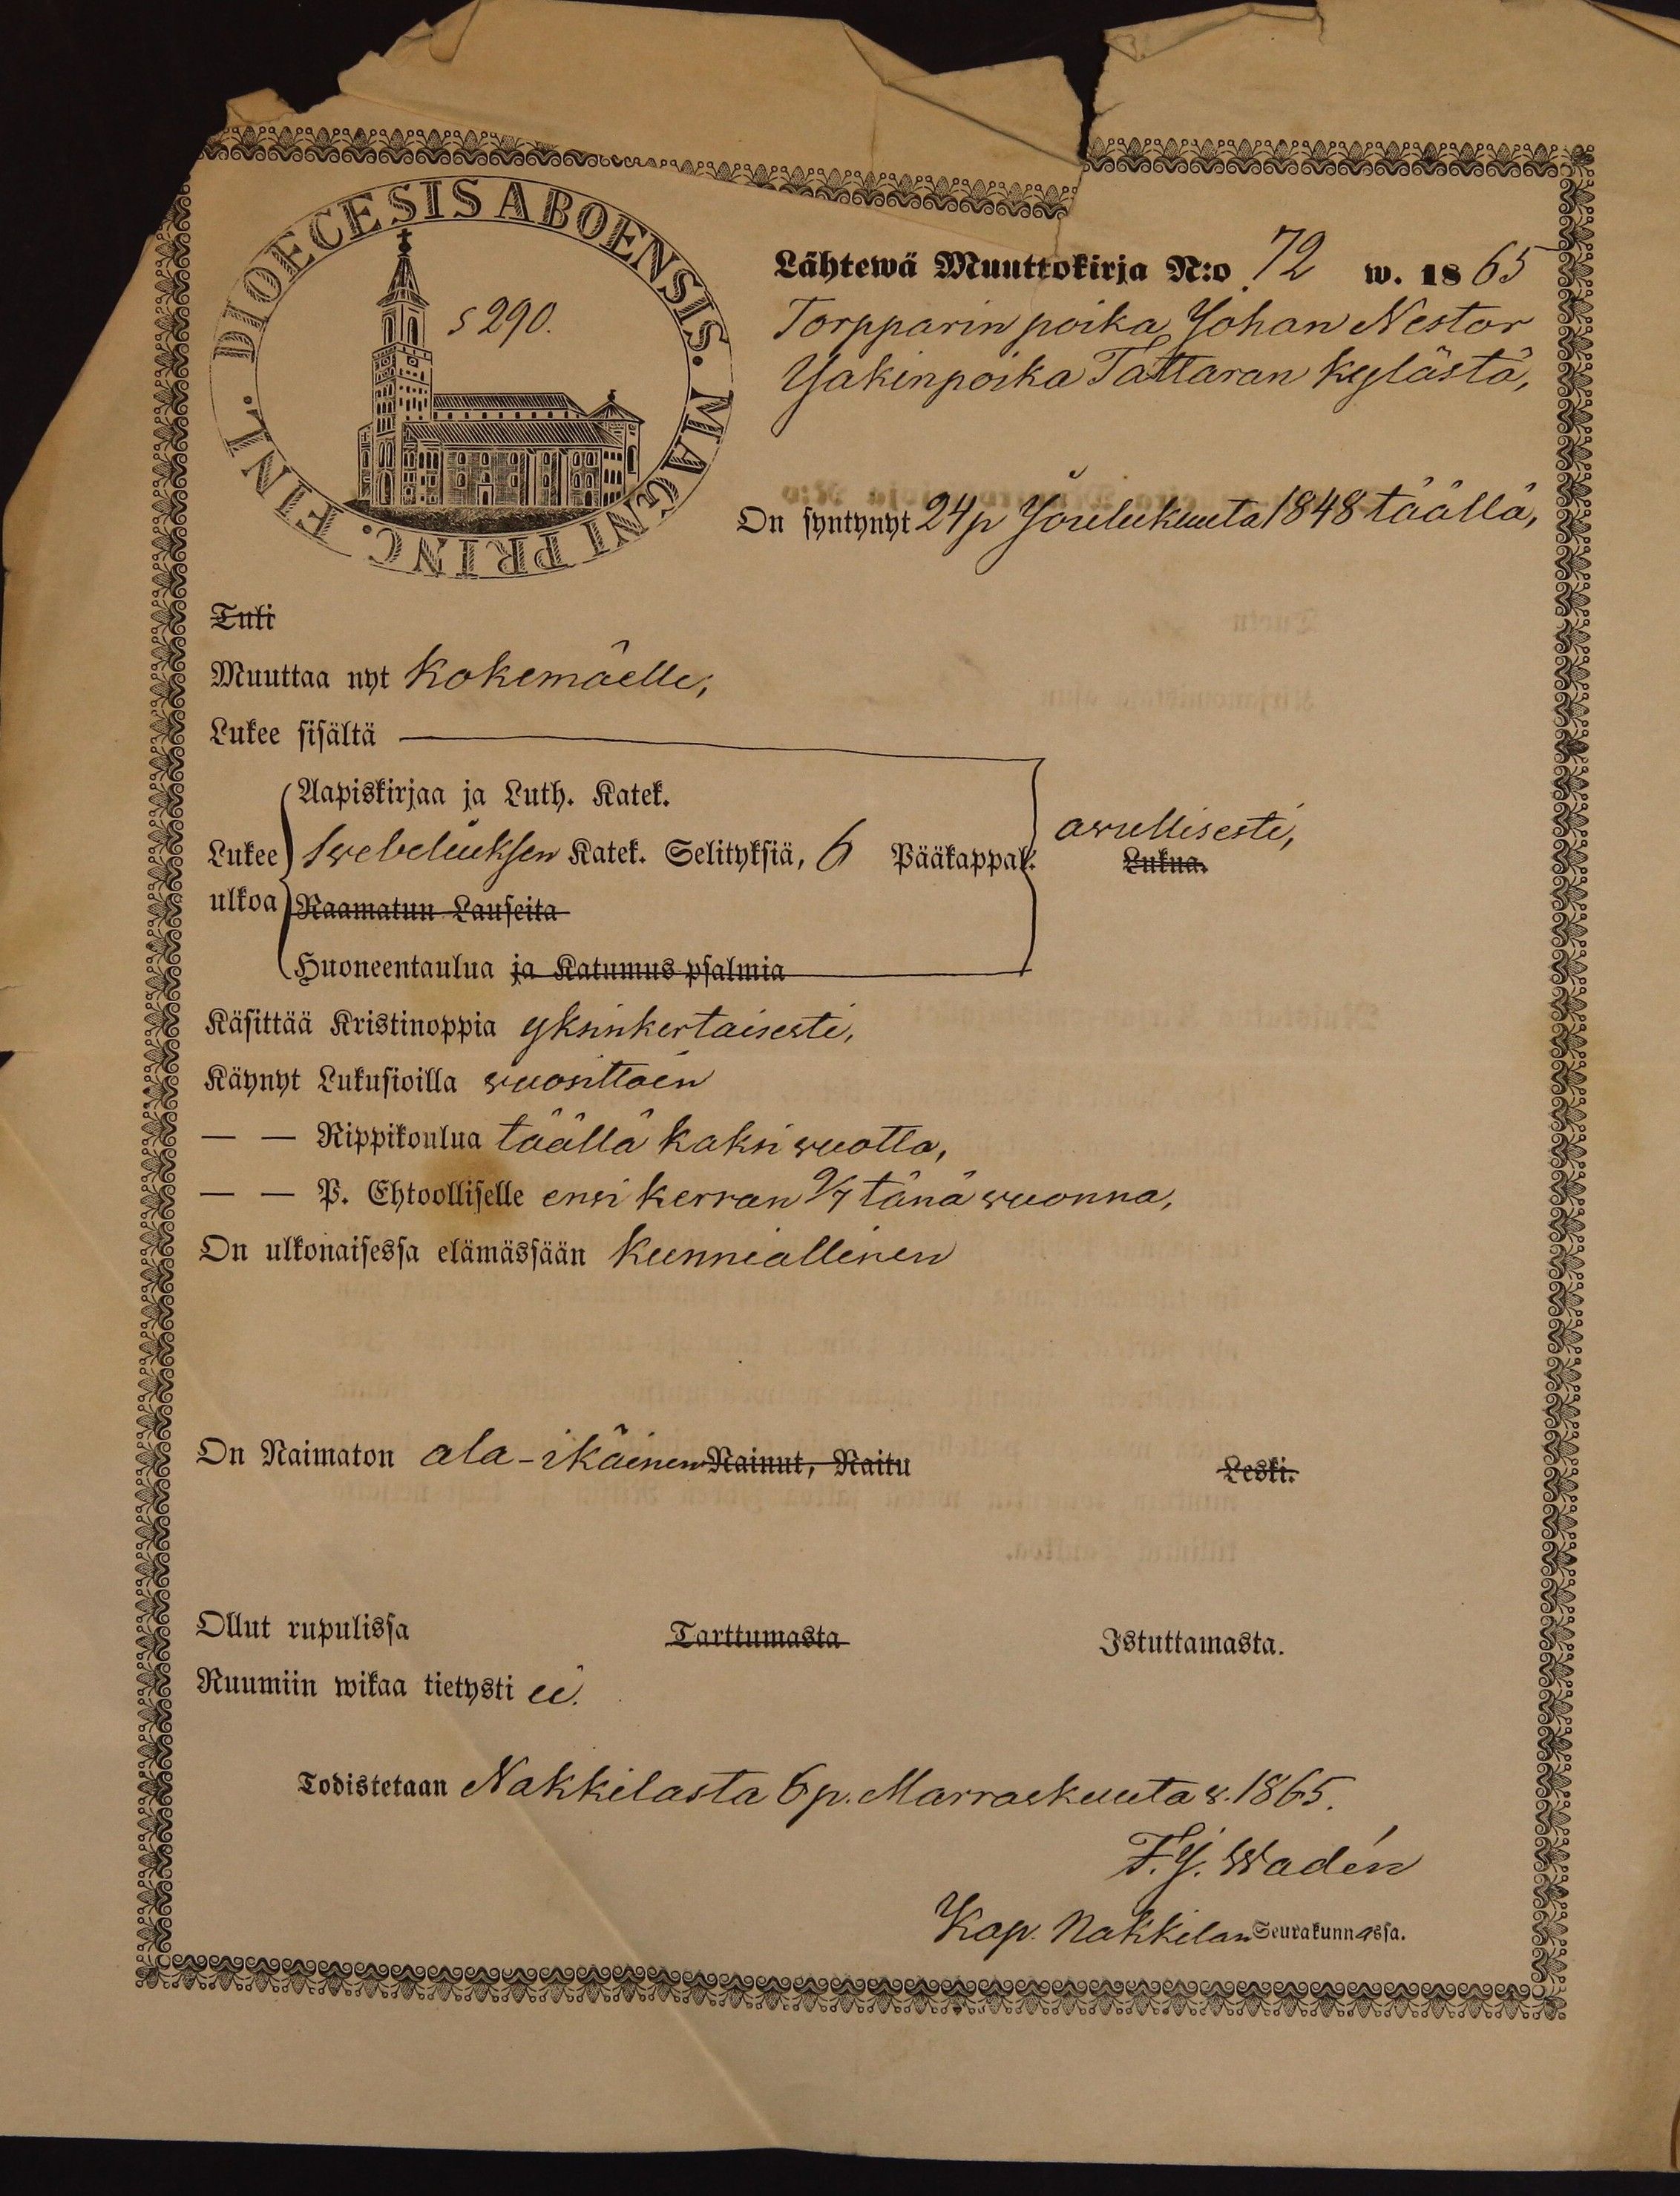 DIOECESIS ABOENSIS. MAGNI PRINC. FINL.
s 290.
Lähtewä Muuttokirja N:o 72 w. 1865
Torpparin poika Johan Nestor
Jakinpoika Tattaran kylästä,
On syntynyt 24 p Joulukuuta 1848 täällä,
Tuli
Muuttaa nyt Kokemäelle,
Lukee sisältä
Aapiskirjaa ja Luth. Katek.
Lukee Swebeliuksen Katek. Selityksiä, 6 Pääkappal. awullisesti,
Lukua.
ulkoa Raamatun Lauseita
Huoneentaulua ja Katumus-psalmia
Käsittää Kristinoppia yksinkertaisesti,
Käynyt Lukusioilla wuosittain
— — Rippikoulua täällä kaksi wuotta,
— — P. Ehtoolliselle ensi kerran 9/7 tänä wuonna,
On ulkonaisessa elämässään kunniallinen
On Naimaton ala-ikäinen Nainut, Naitu Leski.
Ollut rupulissa Tarttumasta Istuttamasta.
Ruumiin wikaa tietysti ei.
Todistetaan Nakkilasta 6 p. Marraskuuta w. 1865.
F. J. Wadén
Kap. Nakkilan Seurakunnassa.